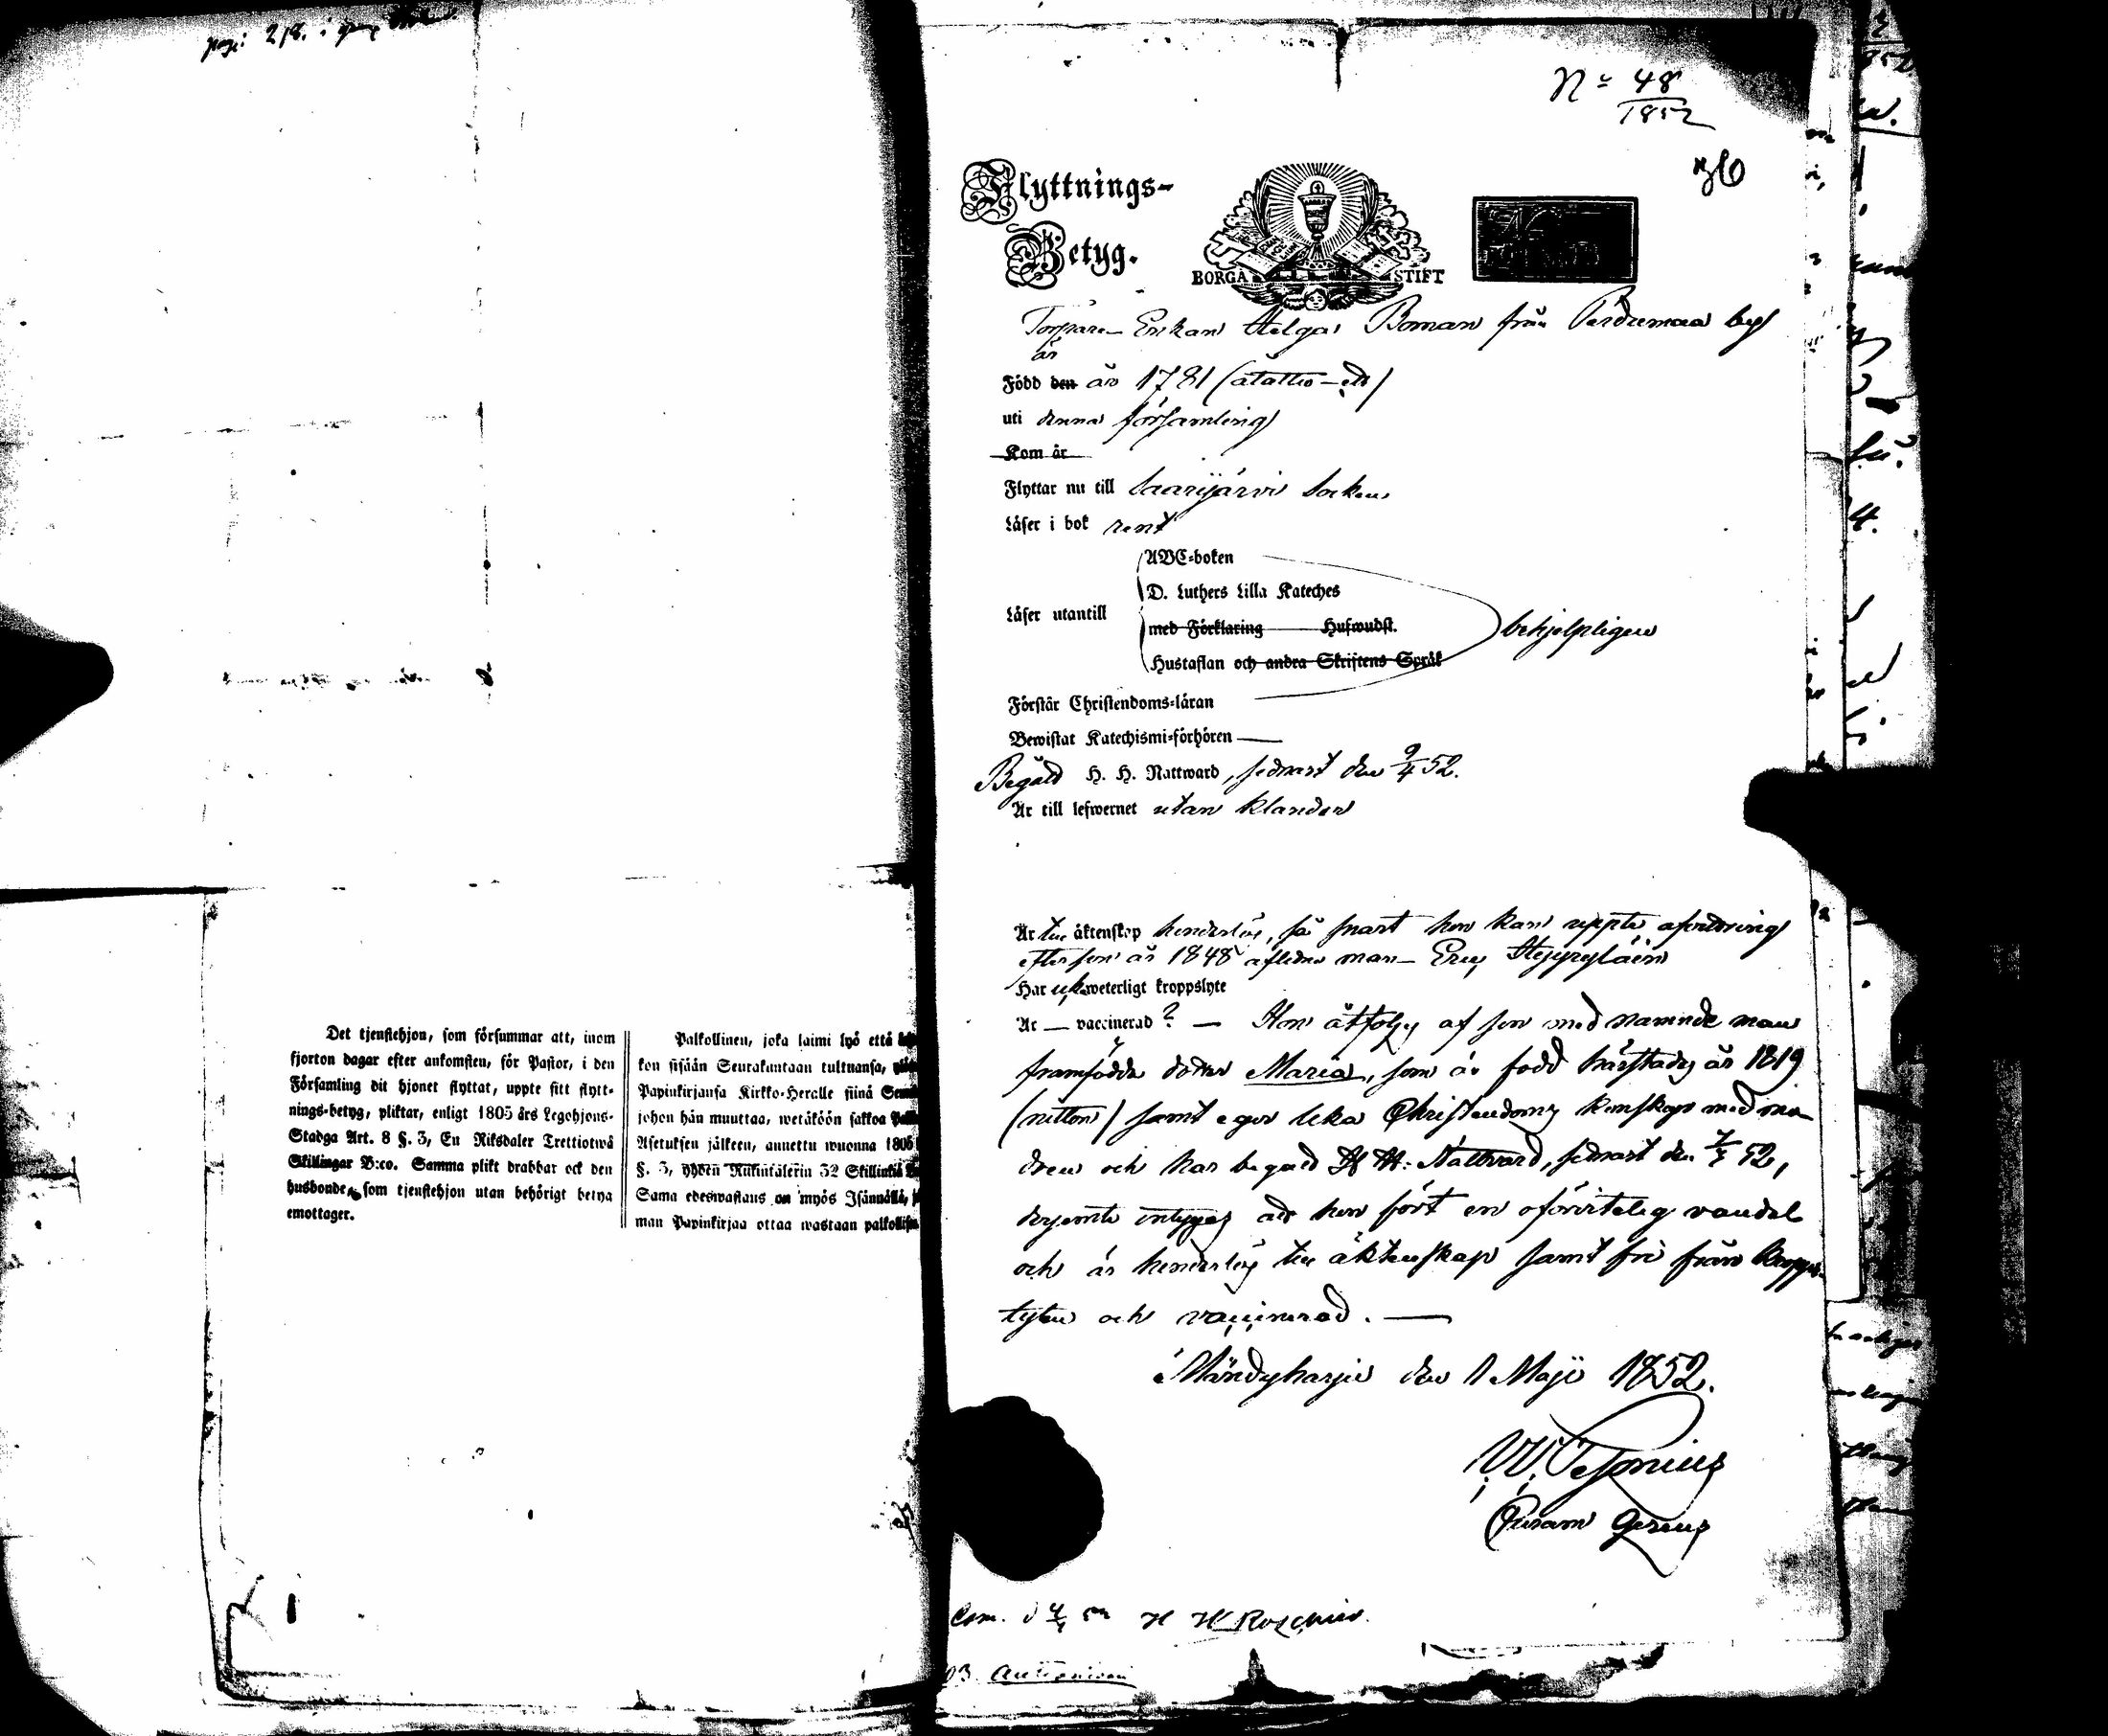 pag: 218. i
Det tjenstehjon, som försummar att, inom
fjorton dagar efter ankomsten, för Pastor, i den
Församling dit hjonet flyttat, uppte sitt flytt-
nings-betyg, pliktar, enligt 1805 års Legohjons-
Stadga Art. 8 §. 3, En Riksdaler Trettiotwå
Skillingar B:co. Samma plikt drabbar ock den
husbonde, som tjenstehjon utan behörigt betyg
emottager.
Palkollinen, joka laimi lyö että
kon sisään Seurakuntaan tultuansa,
Papinkirjansa Kirkko-Herralle siinä
johon hän muuttaa, wetäköön sakkoa
Asetuksen jälkeen, annettu wuonna 1805
§. 3, yhden Riikintalerin 32 Skillinkiä
Sama edeswastaus on myös Isännällä,
man Papinkirjaa ottaa wastaan
No 48
1852
36
Flyttnings-
Betyg.
BORGÅ STIFT
Torpare- Enkan Helga Boman från Pärdumaa by
är
Född den år 1781 (åtattio-ett)
uti denna församling
Kom år
Flyttar nu till Saarijärvi Socken
Läser i bok rent
Läser utantill
ABC-boken
D. Luthers Lilla Kateches
med Förklaring Hufwudst.
Hustaflan och andra Skriftens Språk
behjelpligen
Förstår Christendoms-läran
Bewistat Katechismi-förhören —
Begått H. H. Nattward, sednast den 9/4 52.
Är till lefwernet utan klander
Är till äktenskap hinderlös, så snart hon kan uppte afvittring
efter sin år 1848 aflidne man
Har icke weterligt kroppslyte
Är — vaccinerad? — Hon åtföljes af sin med nämnde man
framfödda dotter Maria, som är född härstädes år 1819
(nitton) samt eger lika Christendoms kunskap med mo-
dren och har begått H. H. Nattvard, sednast den 52,
derjemte intygas att hon fört en oförvitelig vandel
och är hinderlös till äktenskap samt fri från kropps-
lyten och vaccinerad. —
Mändyharju den 1 Maji 1852.
Com. d